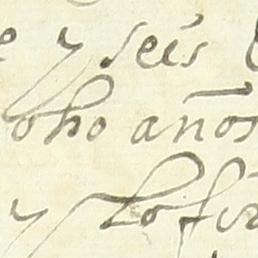 e y seis
ocho años
y lo fir